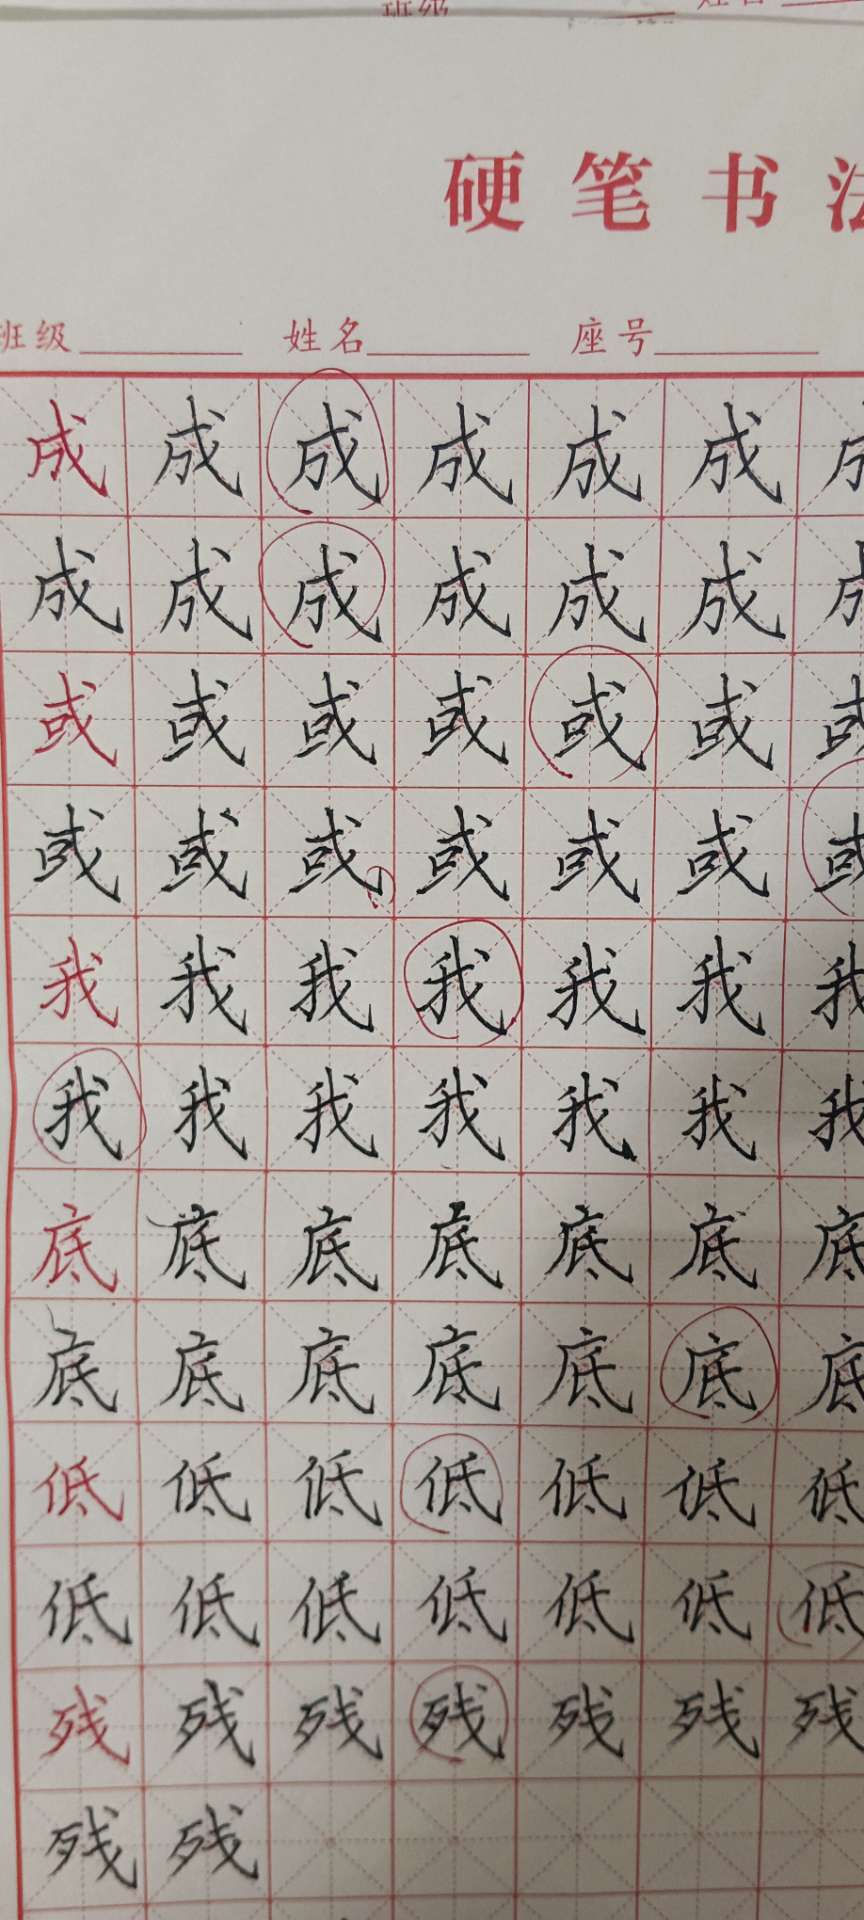 班级 姓名
硬笔书法
班级 姓名 座号
成成成成成成成
成成成成成成成
或或或或或或或
或或或或或或或
我我我我我我我
我我我我我我我
底底底底底底底
底底底底底底底
低低低低低低低
低低低低低低低
残残残残残残残
残残